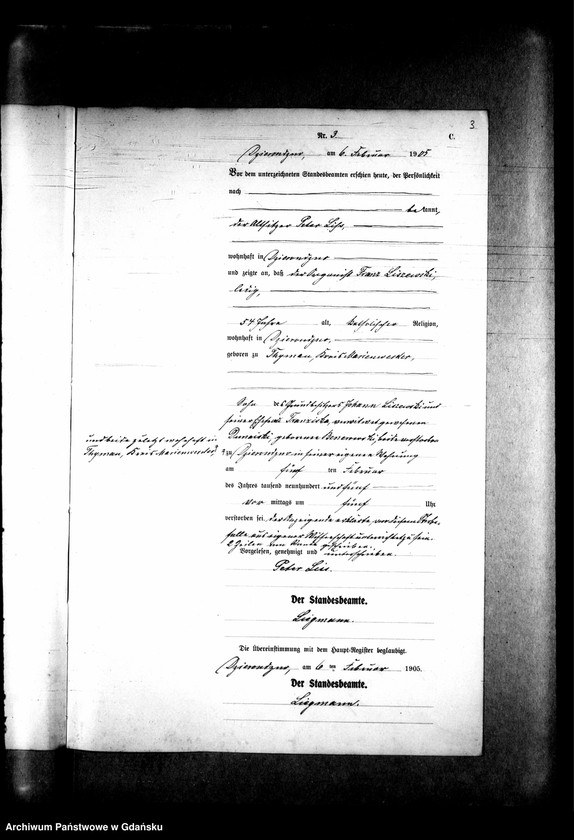 3.
Nr. 3
C.
Dzierondzno, am 6. Februar 1905
Vor dem unterzeichneten Standesbeamten erschien heute, der Persönlichkeit
nach
bekannt,
der Altsitzer Peter Liss,
wohnhaft in Dzierondzno
und zeigte an, daß der Organist Franz Liszewski,
ledig,
54 Jahre alt, katholischer Religion,
wohnhaft in Dzierondzno,
geboren zu Thymau, Kreis Marienwerder,
Sohn des Grundbesitzers Johann Liszewski und
seiner Ehefrau Franziska, verwitwet gewesenen
geborenen beide verstorben
und beide zuletzt wohnhaft in
Thymau, Kreis Marienwerder,
zu Dzierondzno in seiner eigenen Wohnung
am fünf ten Februar
des Jahres tausend neunhundert und fünf
vor mittags um fünf Uhr
verstorben sei. Der Anzeigende erklärte, von diesem Sterbe-
falle aus eigener Wissenschaft unterrichtet zu sein.
2 Zeilen am Rande geschrieben.
Vorgelesen, genehmigt und unterschrieben.
Peter Liss.
Der Standesbeamte.
Liegmann.
Die Übereinstimmung mit dem Haupt-Register beglaubigt.
Dzierondzno, am 6 ten Februar 1905.
Der Standesbeamte.
Liegmann.
Archiwum Państwowe w Gdańsku